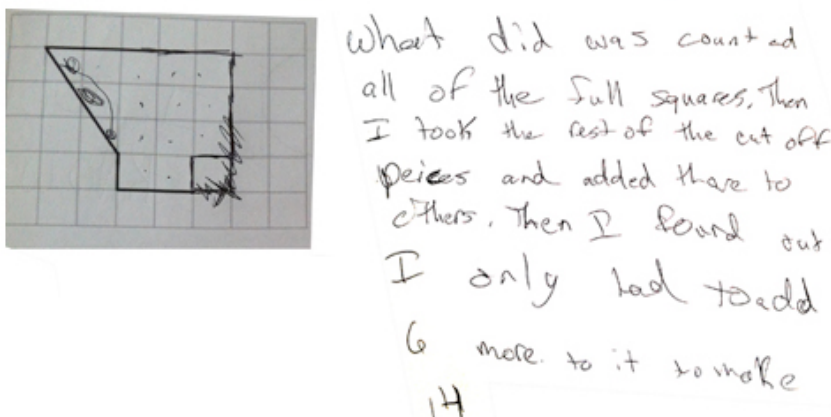 What did was counted
all of the full squares. Then
I took the rest of the cut off
peices and added thore to
others. Then I found out
I only had to add
6 more to it to make
14